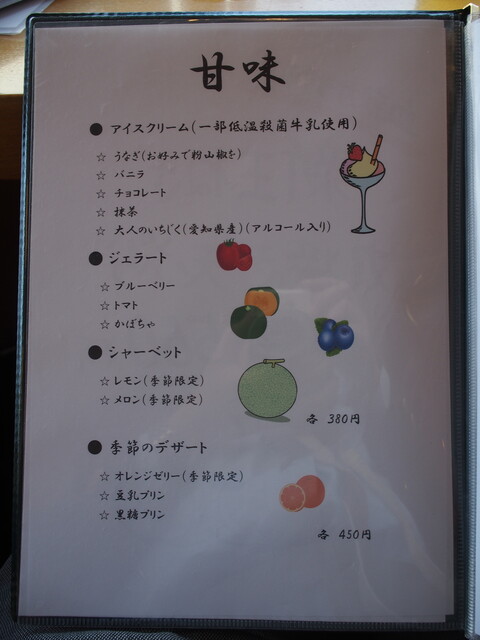 甘味
● アイスクリーム(一部低温殺菌牛乳使用)
☆ うなぎ(お好みで粉山椒を)
☆ バニラ
☆ チョコレート
☆ 抹茶
☆ 大人のいちじく(愛知県産)(アルコール入り)
● ジェラート
☆ ブルーベリー
☆ トマト
☆ かぼちゃ
● シャーベット
☆ レモン(季節限定)
☆ メロン(季節限定)
各 380円
● 季節のデザート
☆ オレンジゼリー(季節限定)
☆ 豆乳プリン
☆ 黒糖プリン
各 450円